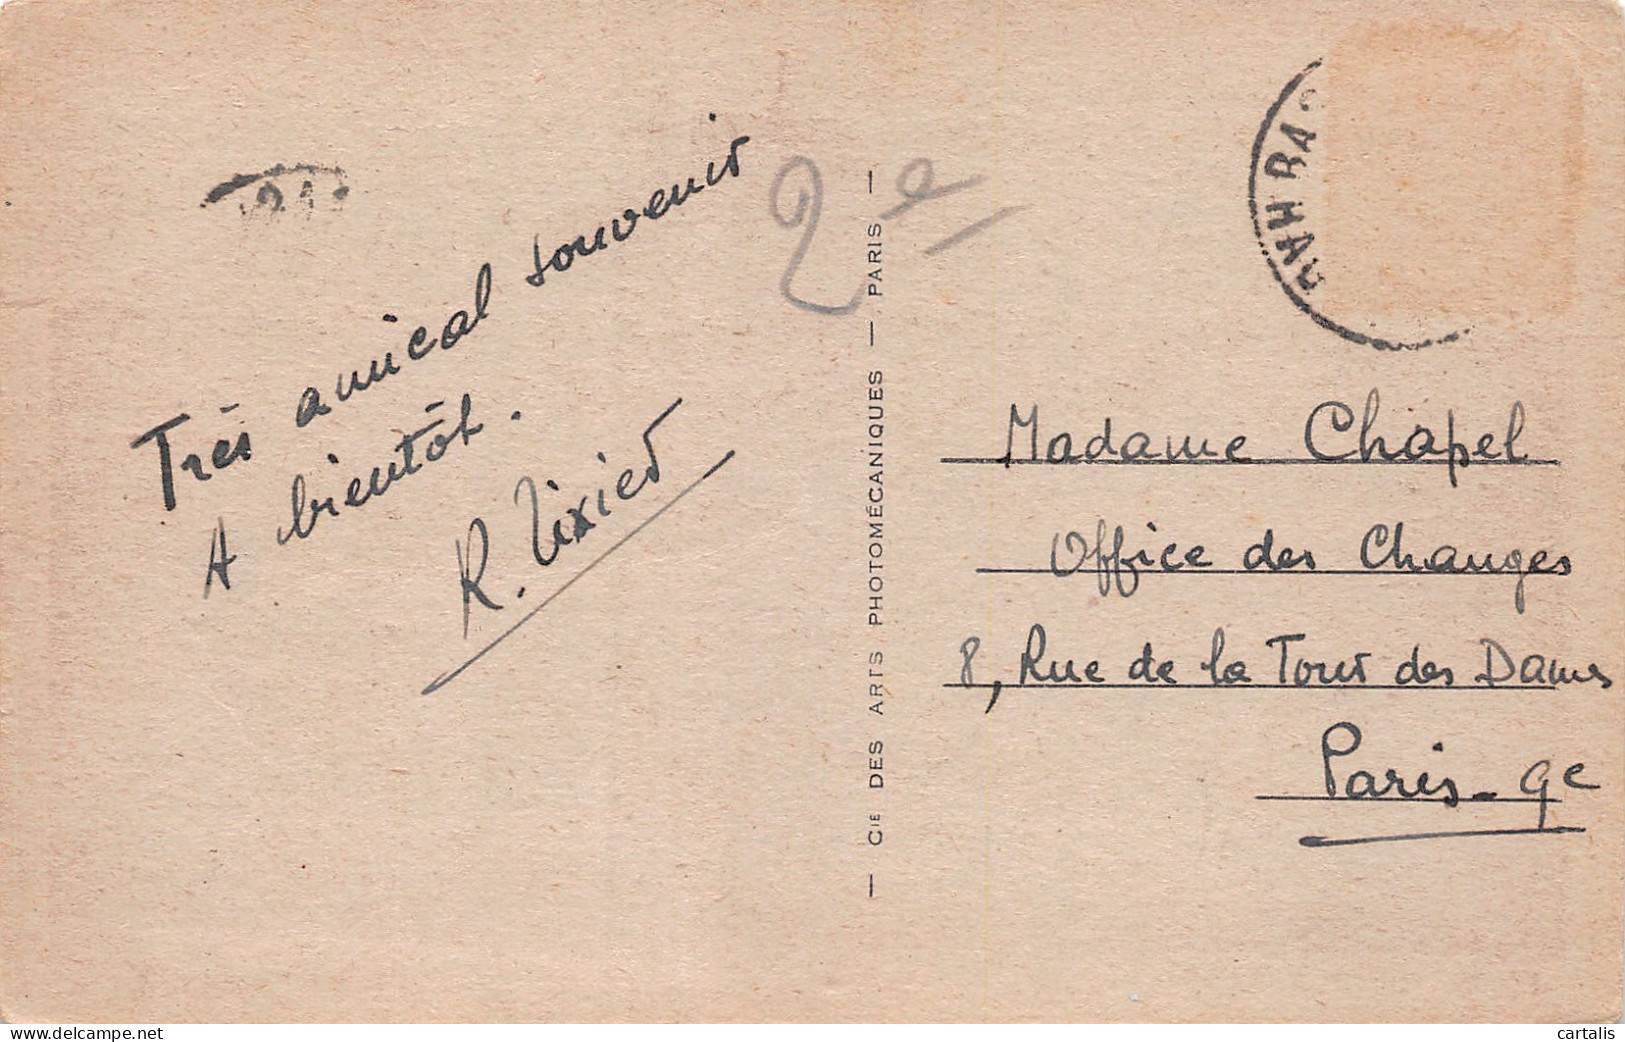 Très amical souvenir
A bientôt.
R. Tixier
2e
— Cie DES ARTS PHOTOMÉCANIQUES — PARIS —
Madame Chapel
Office des Changes
8, Rue de la Tour des Dames
Paris-9e
delcampe.net
cartalis